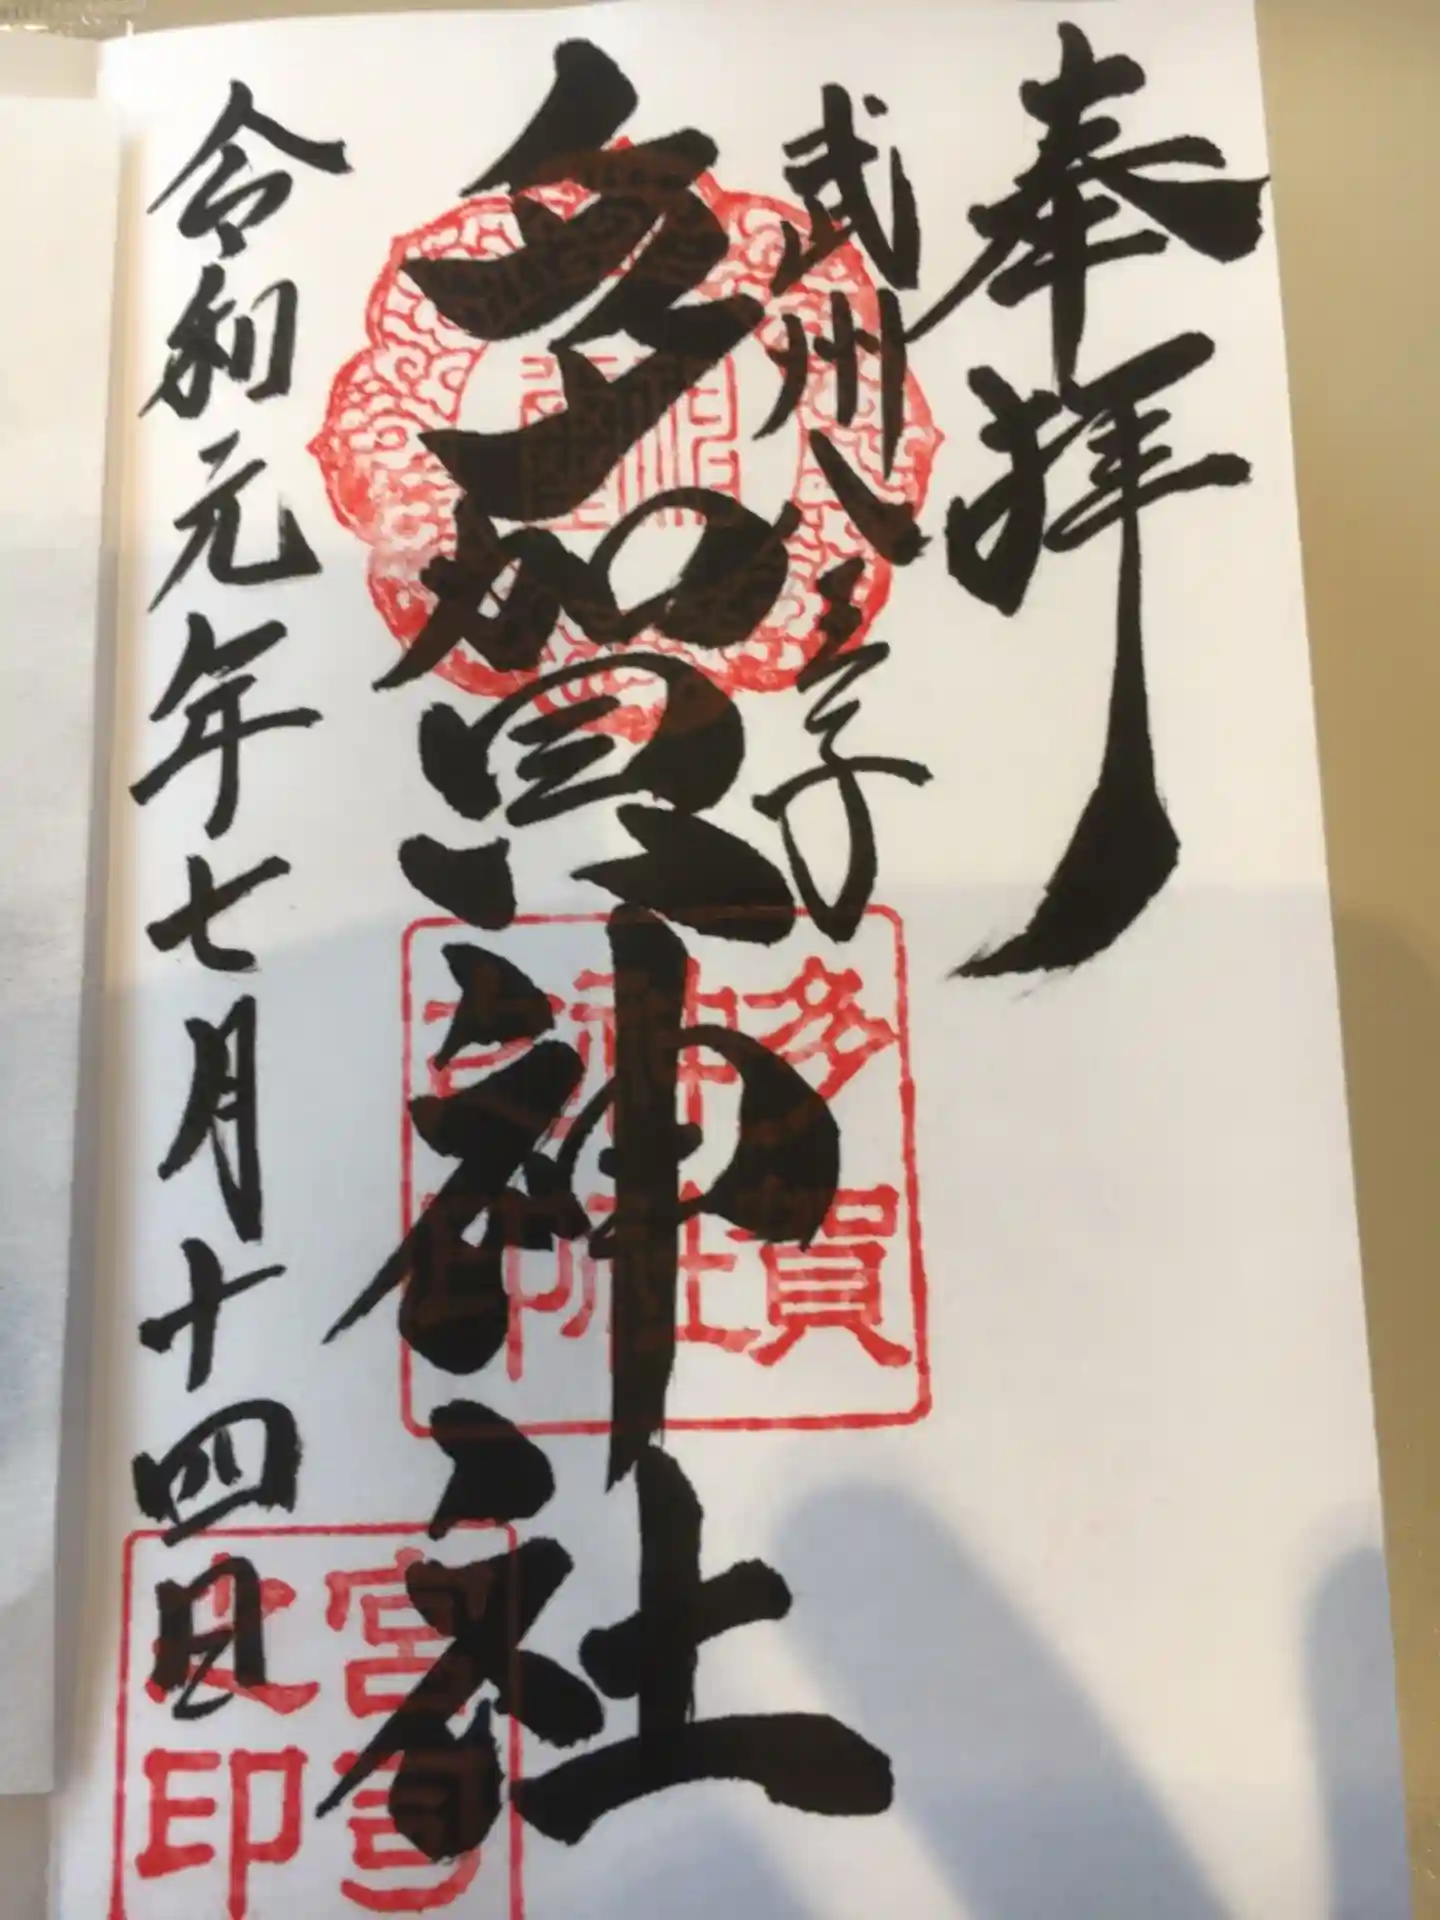 奉拝
武州八王子
多賀神社
多賀
神社
之印
令和元年七月十四日
宮司
之印